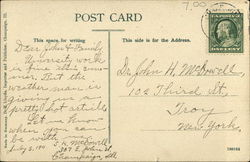 7.00
POST CARD
This space for writing
This side is for the Address.
Dear John & Family
University work
is fine this sum-
mer. But the
weather man is
giving us some
pretty hot articles.
Let us know
when you can
be with us.
July 5, 1910
S. H. McDowell
307 E. John St
Champaign, Ill
Dr. John H. McDowell
102 Third St.
Troy
New York.